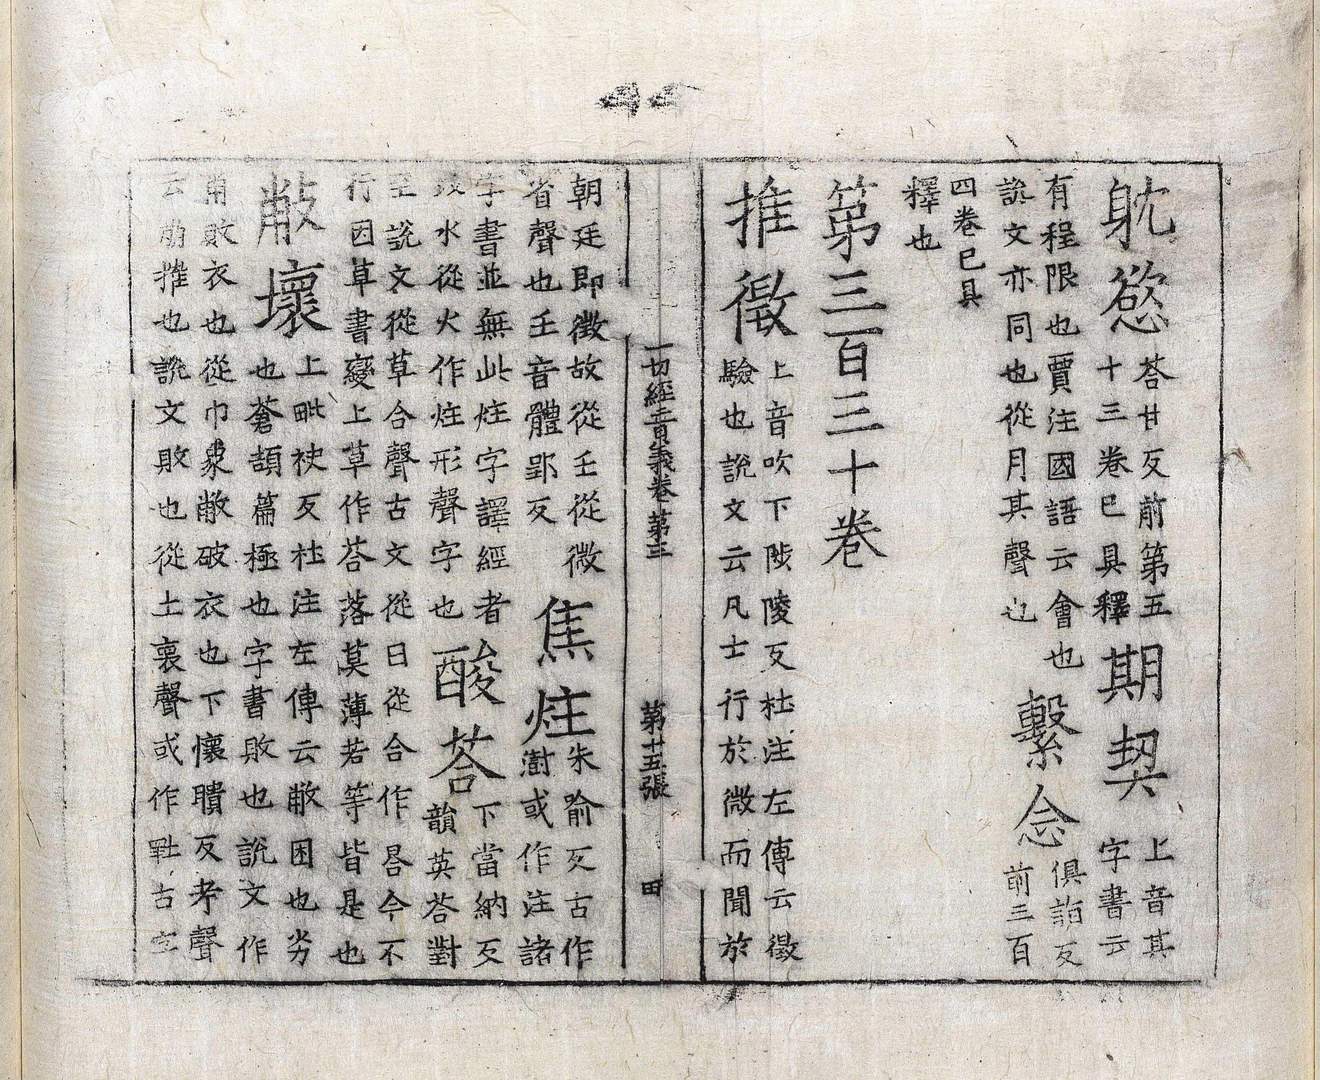 躭慾
荅甘反前第五
十三卷已具釋
期契
上音其
字書云
有程限也賈注國語云會也
說文亦同也從月其聲也
繫念
俱詣反
前三百
四卷已具
釋也
第三百三十卷
推徵
上音吹下陟陵反杜注左傳云徵
驗也說文云凡士行於微而聞於
一切經音義卷第三
第十五張
田
朝廷即徵故從壬從微
省聲也壬音體郢反
焦炷
朱喻反古作
澍或作注諸
字書並無此炷字譯經者
水從火作炷形聲字也
酸荅
下當納反
韻英荅對
至說文從草合聲古文從日從合作畣今不
行因草書變上草作荅落莫薄若等皆是也
敝壞
上毗袂反杜注左傳云敝困也劣
也蒼頡篇極也字書敗也說文作
㡀敗衣也從巾象敝破衣也下懷聵反考聲
云崩摧也說文敗也從土褱聲或作古字